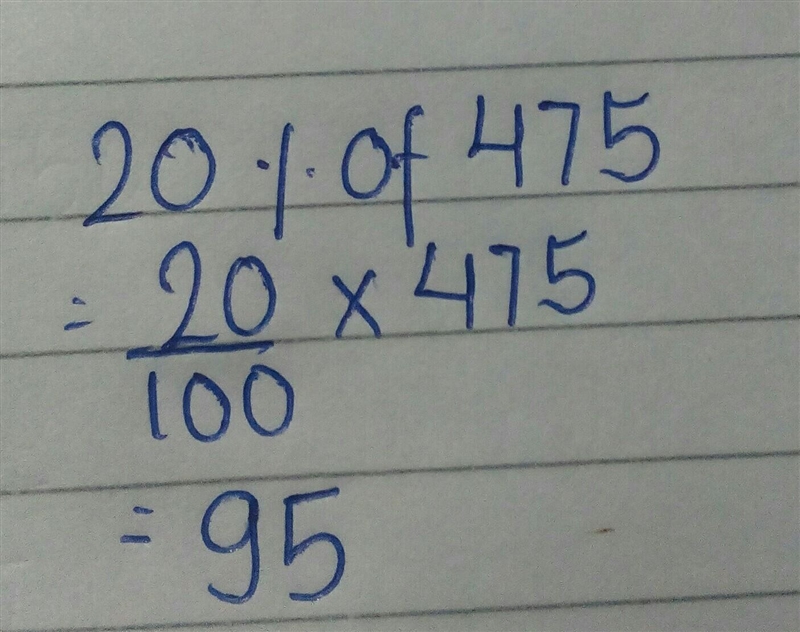 20 % Of 475
= 20/100 x 475
= 95